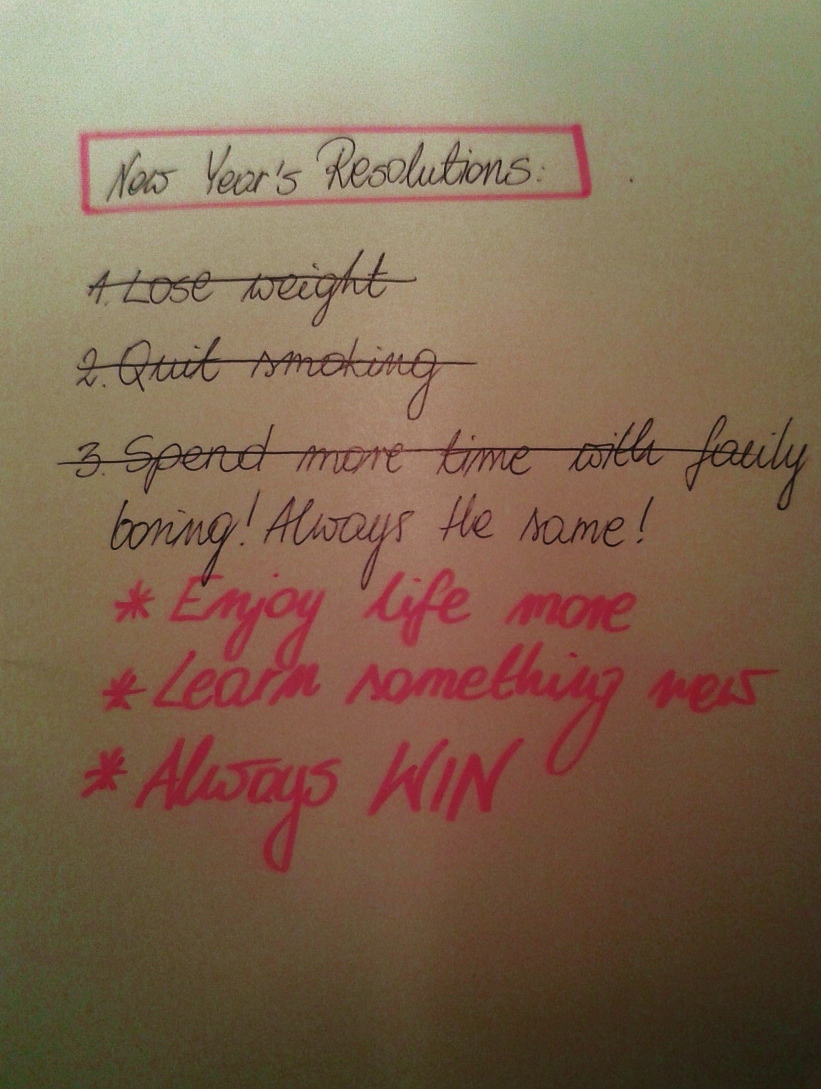 New Year's Resolutions:
1. Lose weight
2. Quit smoking
3. Spend more time with faily
boring! Always the same!
* Enjoy life more
* Learn something new
* Always WIN